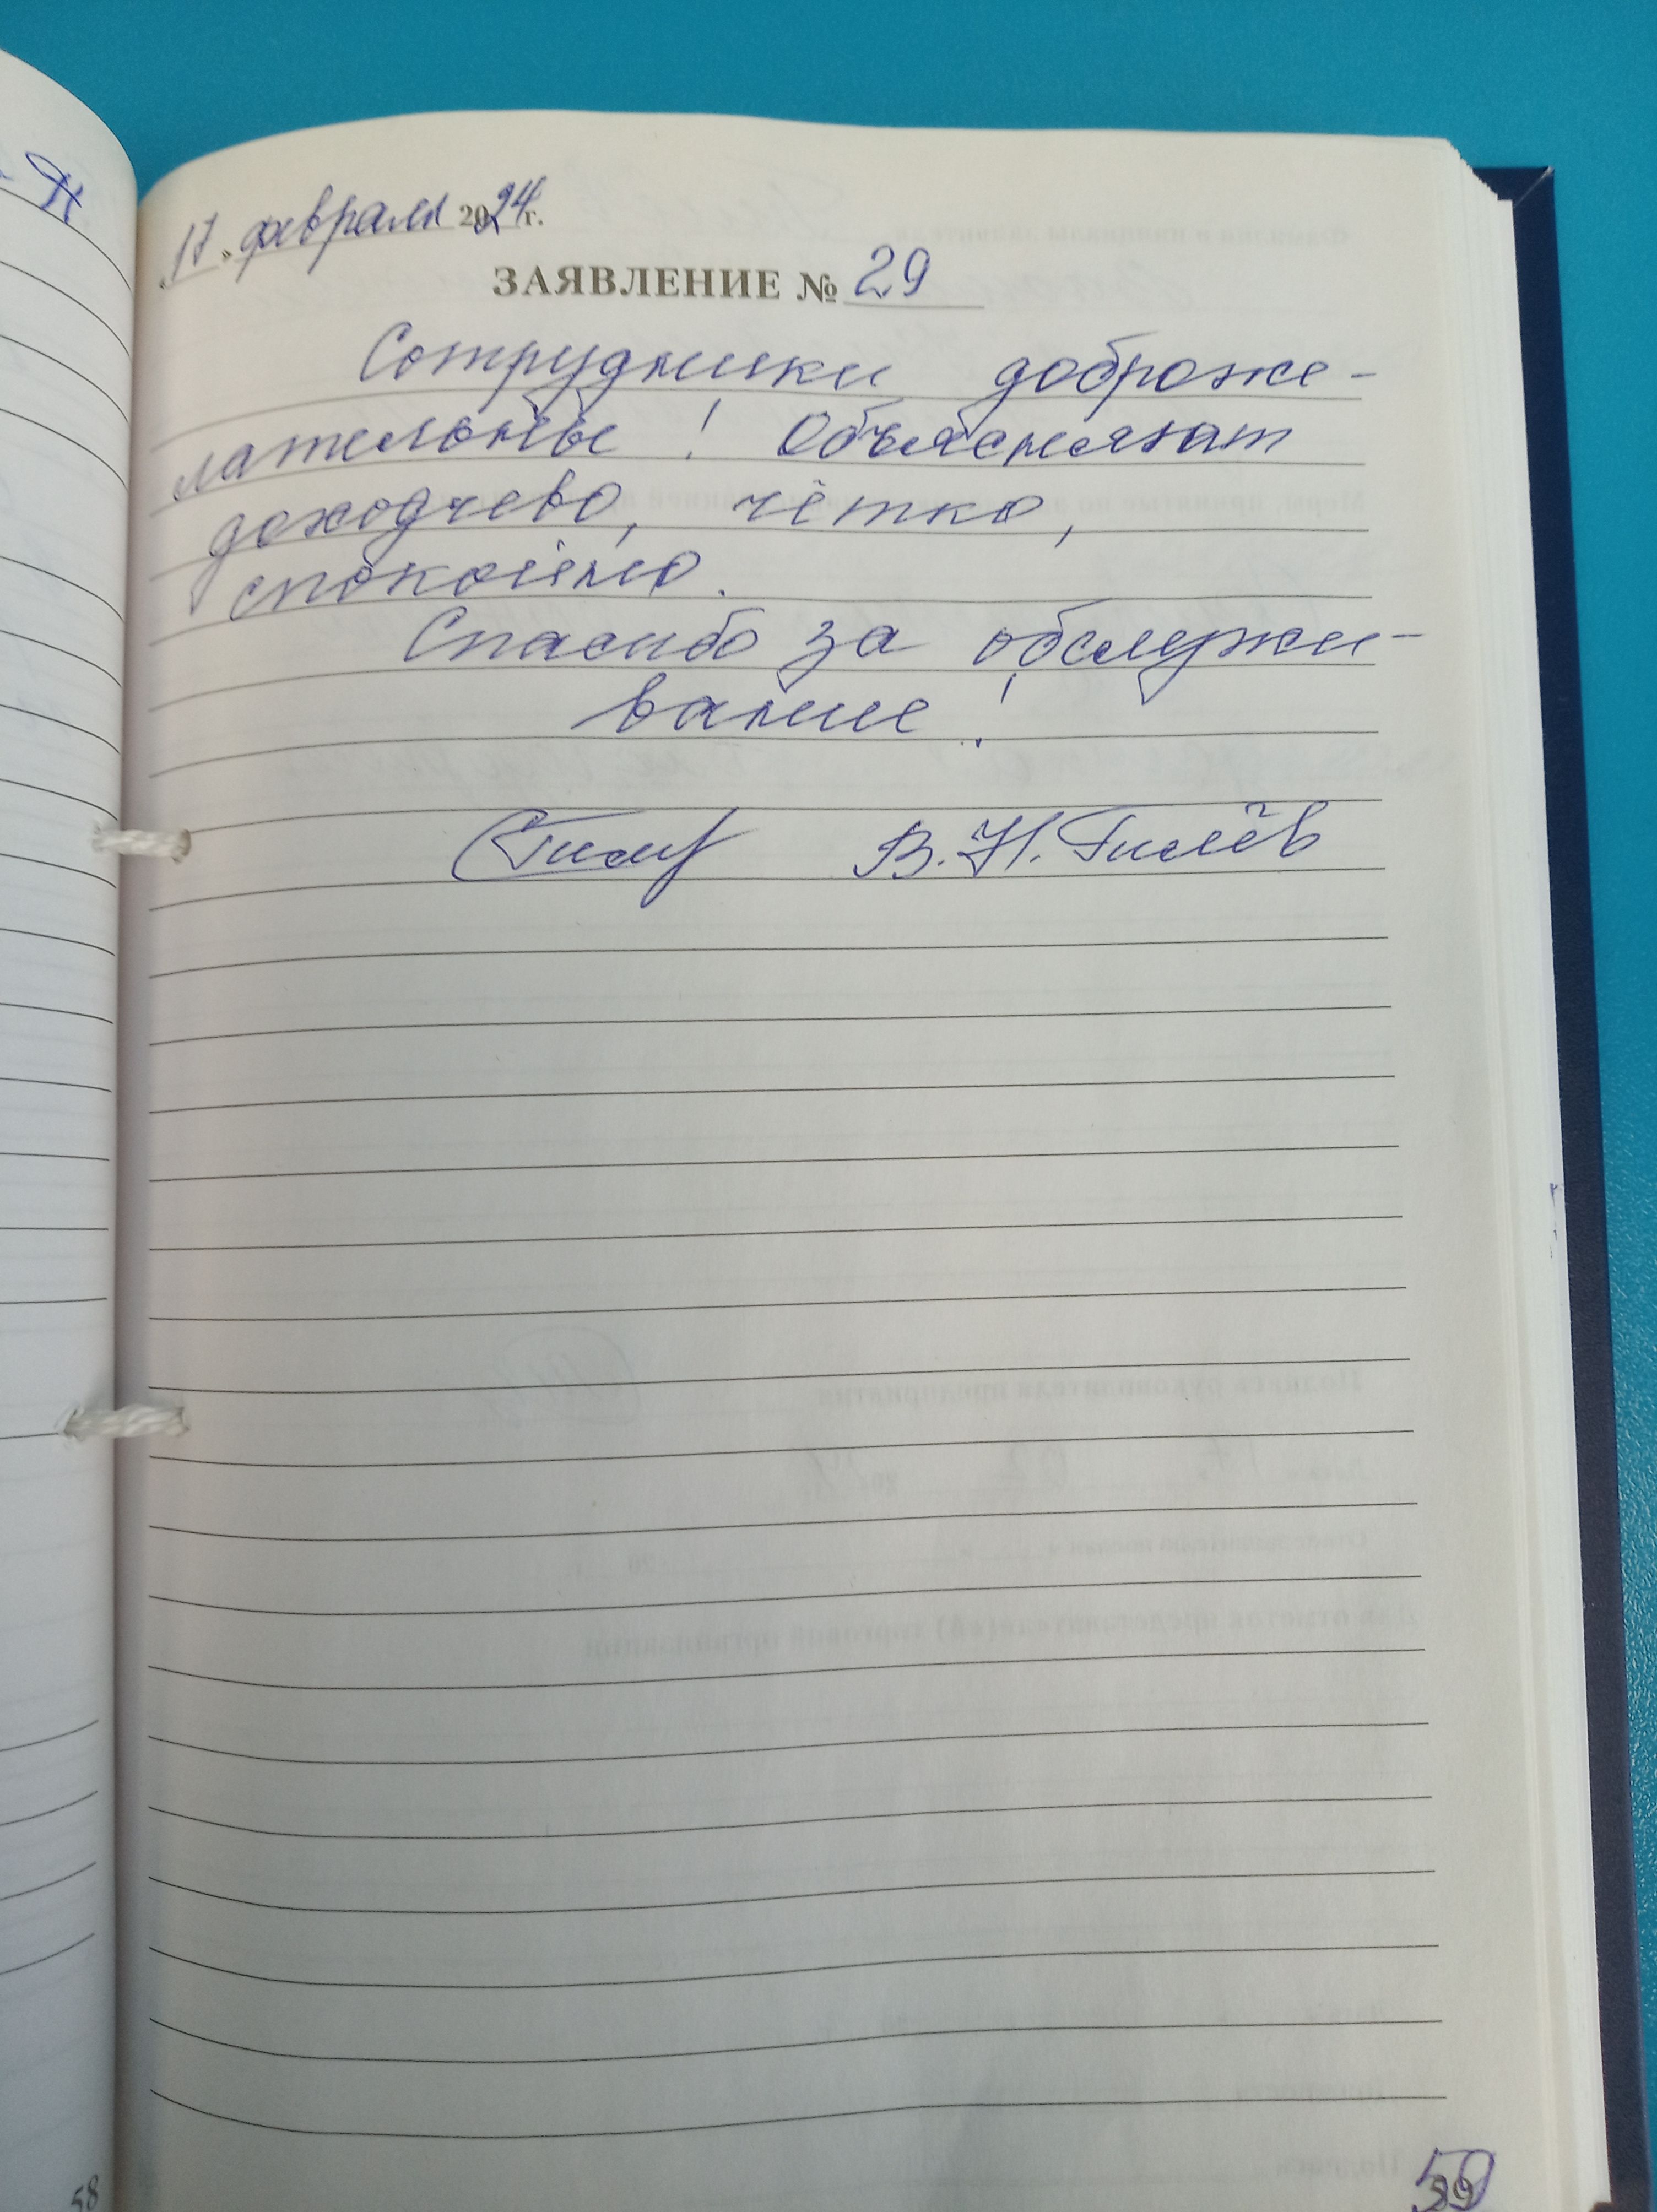 « 17 » февраля 2024 г.
ЗАЯВЛЕНИЕ № 29
Сотрудники доброже-
лательные ! Объясняют
доходчево, чётко,
спокойно.
Спасибо за обслужи-
вание !
В. Н. Гилёв
58
59